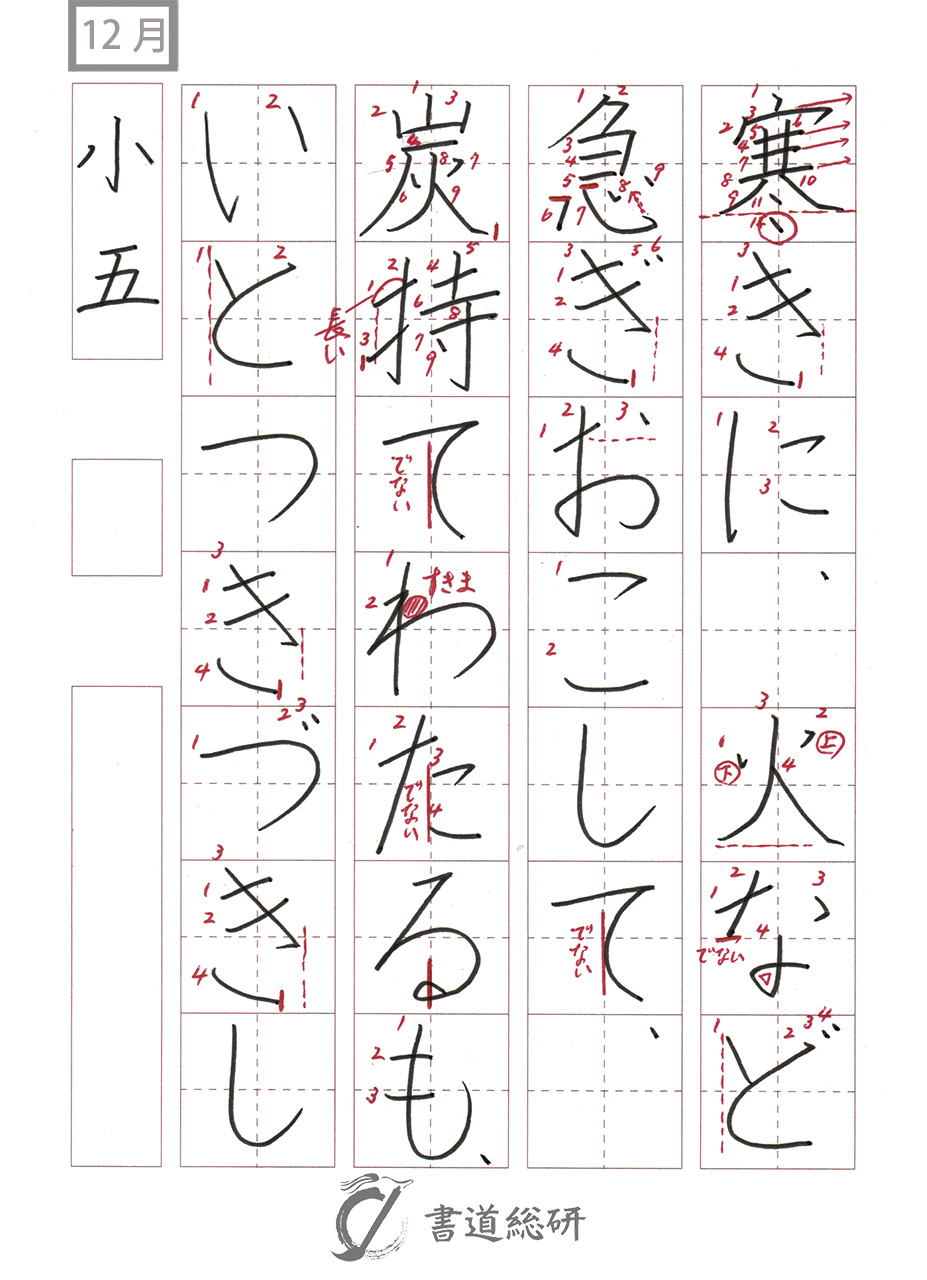 12月
寒きに、火など
急ぎおこして、
炭持てわたるも、
いとつきづきし
小五
上
下
でない
でない
長い
でない
すきま
でない
書道総研